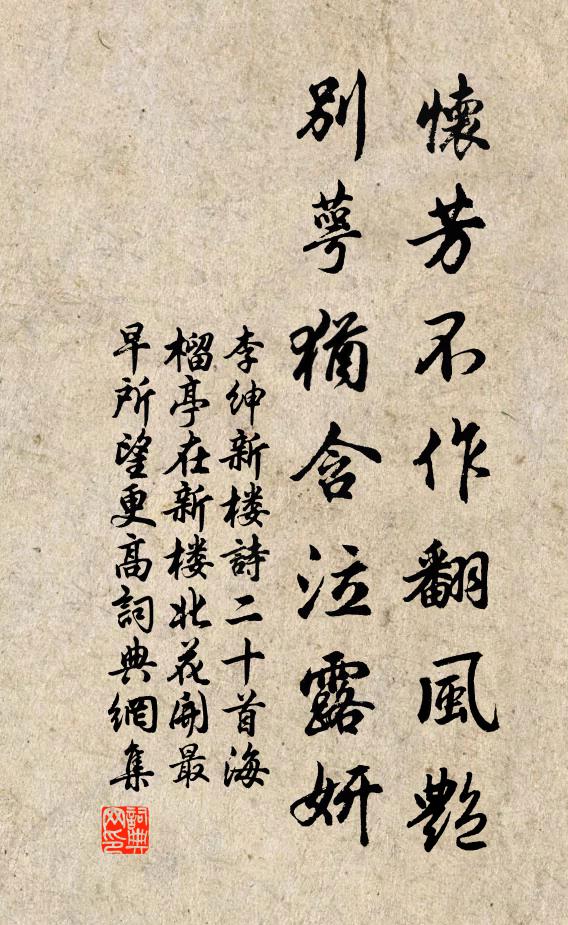 懷芳不作翻風艷
別萼猶含泣露妍
李紳新楼詩二十首海
榴亭在新楼北花開最
早所望更高詞典網集
詞典
网印